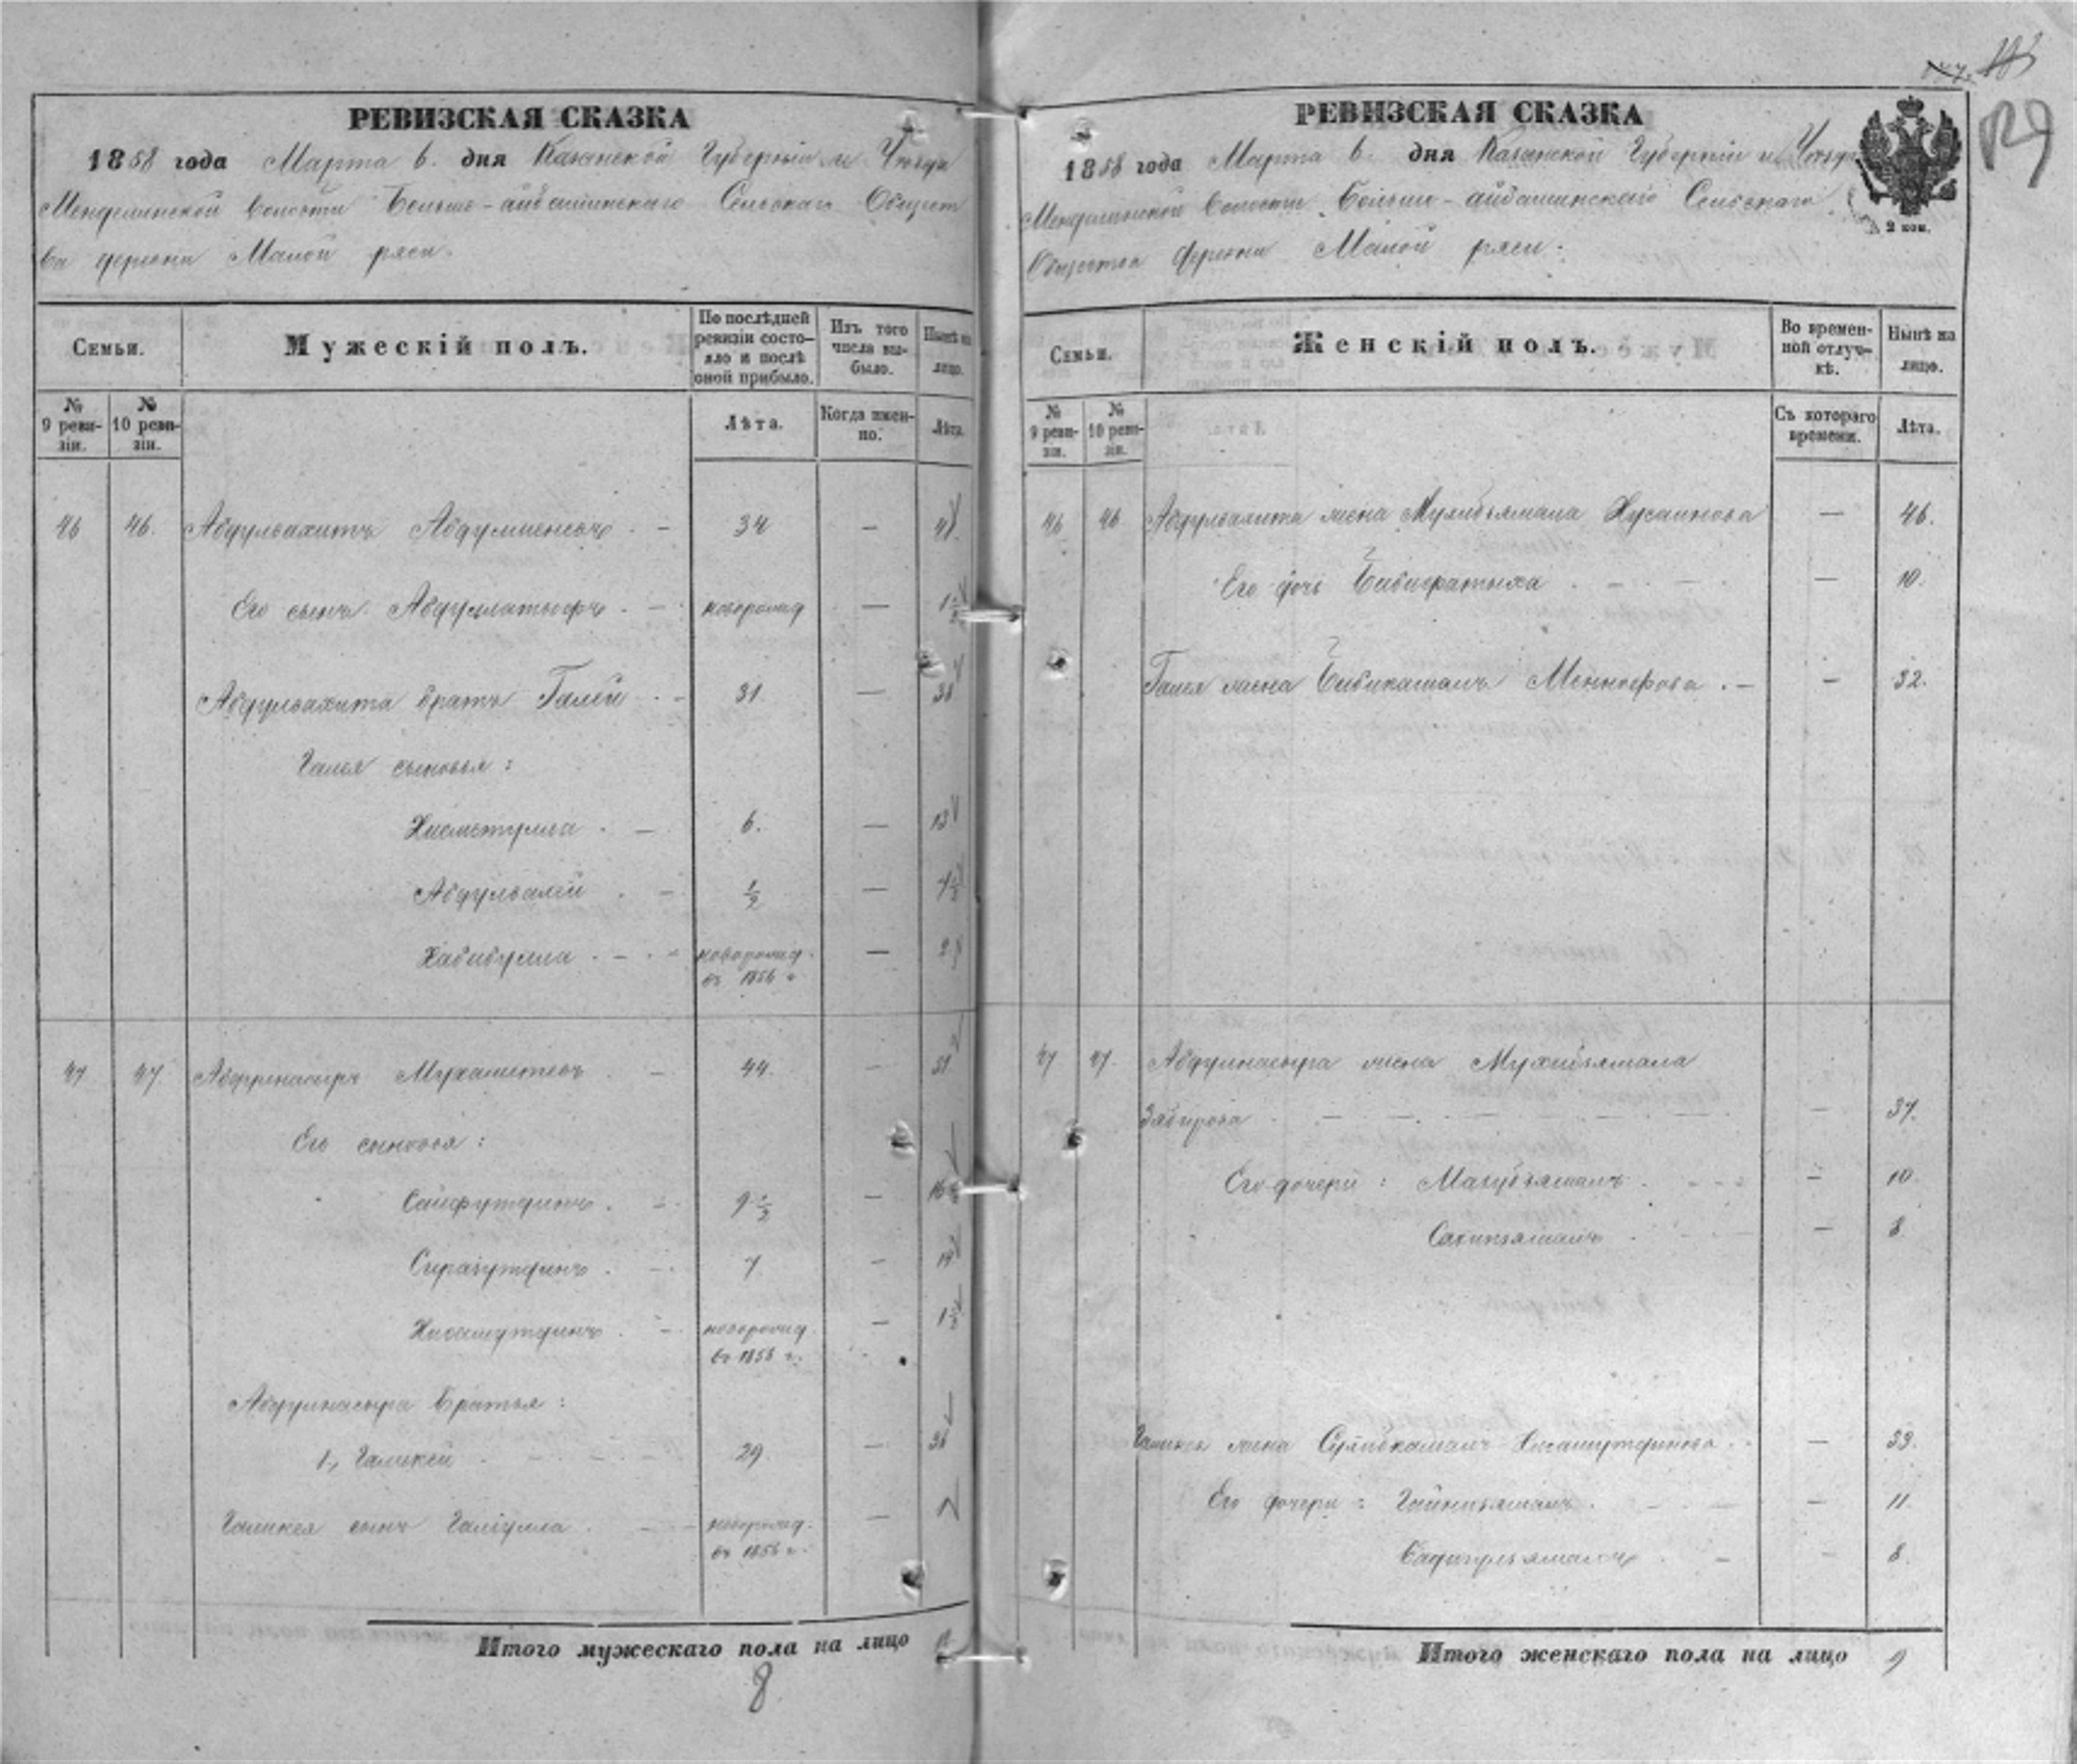 РЕВИЗСКАЯ СКАЗКА
1858 года Марта 6. дня Казанской Губерніи и Уезда
Менделинской волости Больше-айдашинскаго Сельскаго Общест
ва деревни Малой ряси.
Семьи.
Мужескій полъ.
По послѣдней ревизіи состояло и послѣ оной прибыло.
Изъ того числа выбыло.
Нынѣ на лицо.
№ 9 ревизіи.
№ 10 ревизіи.
Лѣта.
Когда именно.
Лѣта.
46 46. Абдулвахитъ — 34 —
Его сынъ Абдуллатыфъ — новорожд —
Абдулвахита братъ Галей — 31. — 38
Галея сыновья:
Хисметулла — 6. — 13
Абдулвалей — 1/2 —
Хабибулла — новорожд. — 2
въ 1856 г.
47 47. Абдулнасыръ Мухаметевъ — 44. — 51
Его сыновья:
Сайфутдинъ — 9 1/2 — 16 1/2
Сиразутдинъ — 7. — 14
новорожд. —
въ 1856 г.
Абдулнасыра братья:
1, Галикей — 29 — 36
Галикея сынъ Галіулла — новорожд. — 2
въ 1856 г.
Итого мужескаго пола на лицо
8
РЕВИЗСКАЯ СКАЗКА
1858 года Марта 6. дня Казанской Губерніи и Уезда
Менделинской волости Больше-айдашинскаго Сельскаго
Общества деревни Малой ряси.
2 коп.
129
Семьи.
Женскій полъ.
Во временной отлучкѣ.
Нынѣ на лицо.
№ 9 ревизіи.
№ 10 ревизіи.
Съ котораго времени.
Лѣта.
46 46 Абдулвахита жена Хусаинова — 46.
Его дочь Бибифатыха — 10.
Галея жена Бибикамалъ — 32.
47 47. Абдулнасыра жена
Зябирова — 37.
Его дочери: Махубзямалъ — 10
Сахипзямалъ — 8
Галикея жена — 33.
Его дочери: Гайнизямалъ — 11.
— 8.
Итого женскаго пола на лицо 9